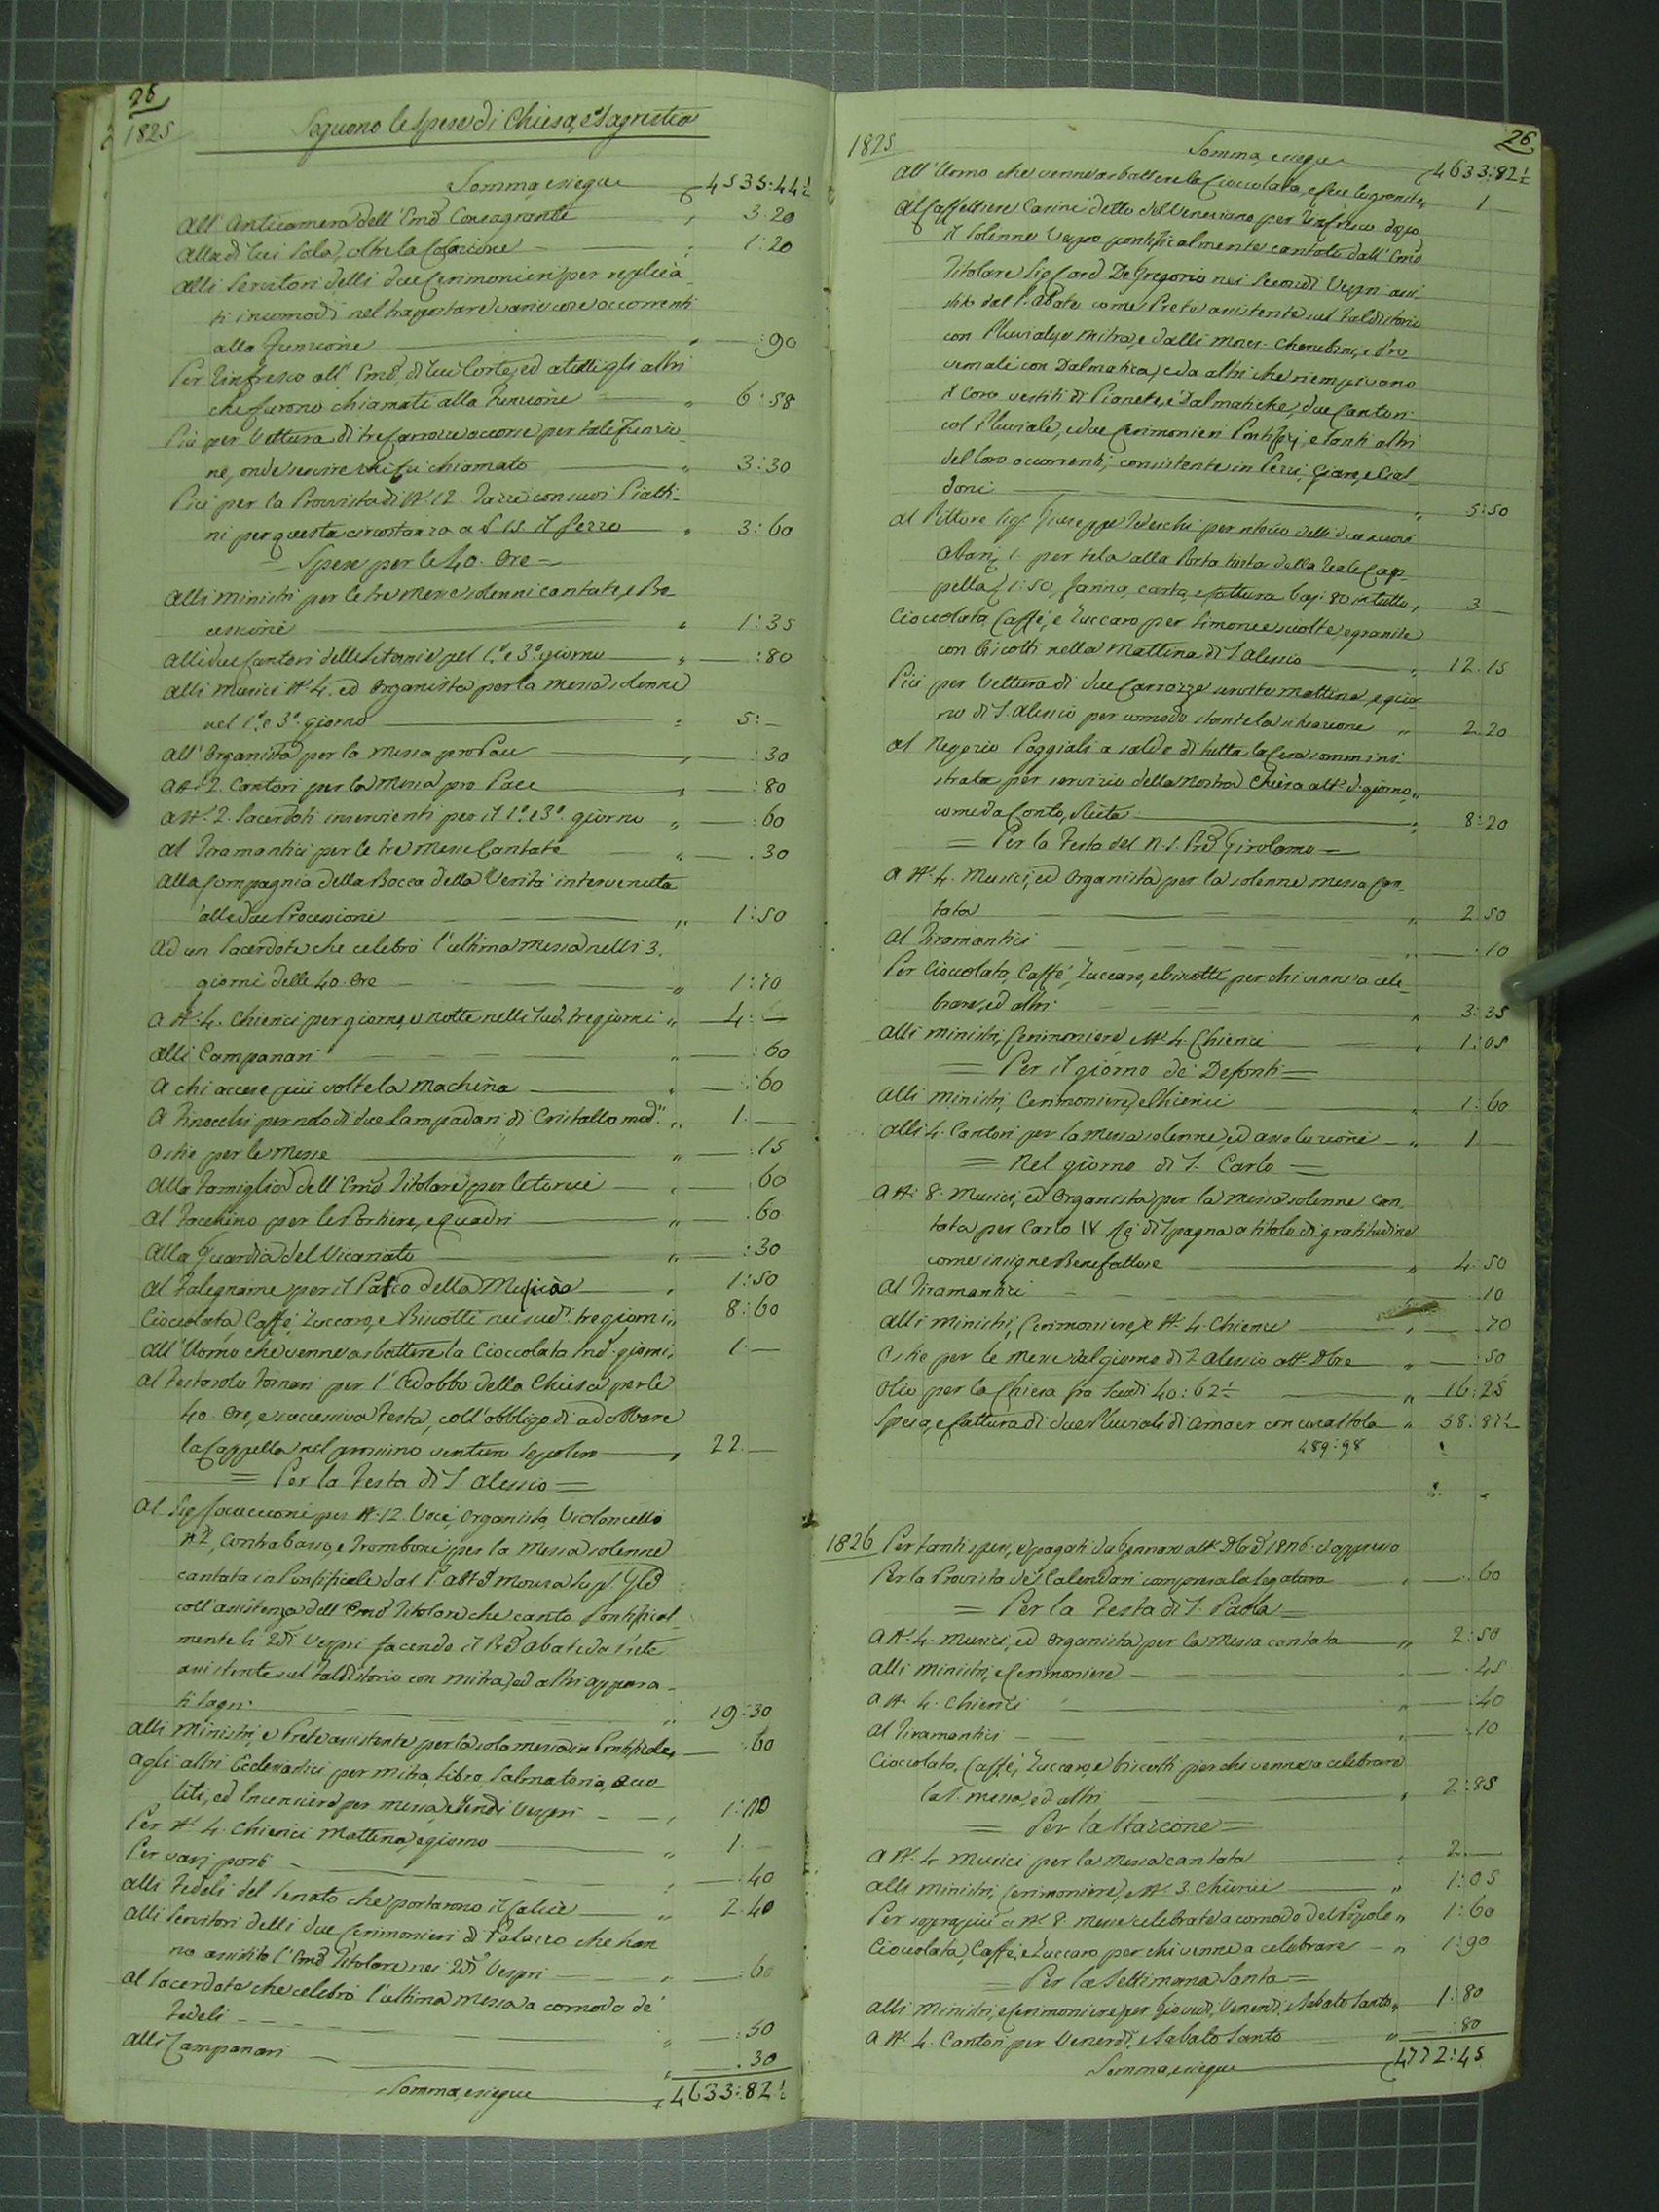 26
1825
Seguono le Spese di Chiesa, e Sagristia
Somma, e segue 4535:44½
All' Anticamera dell' Emõ Consagrante 3:20
Alla di lui Sala, oltre la Colazione 1:20
Alli Servitori delli due Cerimonieri per replica-
ti incomodi nel trasportare varie cose occorrenti
alla Funzione :90
Per Rinfresco all' Emõ, di lui Corte, ed a tutti gli altri
che furono chiamati alla Funzione 6:58
Più per Vettura di tre Carrozze occorse per tale Funzio-
ne, onde servire chi fu chiamato 3:30
Più per la Provvista di N.º 12. Tazze con suoi Piatti-
ni per questa circostanza a b. 15. il Pezzo 3:60
= Spese per le 40. Ore =
Alli Ministri per le tre Messe solenni cantate, e Pro-
cessioni 1:35
Alli due Cantori delle Litanie pel 1.º e 3.º giorno :80
Alli Musici N.º 4. ed Organista per la Messa solenne
nel 1.º e 3.º giorno 5:—
All' Organista per la Messa pro Pace :30
A N.º 2. Cantori per la Messa pro Pace :80
A N.º 2. Sacerdoti inservienti per il 1.º e 3.º giorno :60
Al Tiramantici per le tre Messe Cantate .30
Alla Compagnia della Bocca della Verità intervenuta
alle due Processioni 1:50
Ad un Sacerdote che celebrò l'ultima Messa nelli 3.
giorni delle 40. Ore 1:70
A N.º 4. Chierici per giorno, e notte nelli sud. tre giorni 4:—
Alli Campanari :60
A chi accese più volte la Machina :60
A Finocchi per nolo di due Lampadari di Cristallo 1.—
Ostie per le Messe .15
Alla Famiglia dell' Emõ Titolare per le torcie .60
Al Facchino per le Portiere, e quadri .60
Alla Guardia del Vicariato :30
Al Falegname per il Palco della Musica 1:50
Cioccolata, Caffè, Zuccaro, e Biscotti nei sud. tre giorni 8:60
All' Uomo che venne a sbattere la Cioccolata giorni 1.—
Al Festarolo Fornari per l' Addobbo della Chiesa per le
40. Ore, e successiva Festa, coll' obbligo di addobbare
la Cappella nel prossimo venturo Sepolcro 22.—
= Per la Festa di S. Alessio =
Al Sig. per N.º 12. Voci, Organista, Violoncello
N.º 2, Contrabasso, e Tromboni per la Messa solenne
cantata in Pontificale dal P. Abb.
coll' assistenza dell' Emõ Titolare che cantò Pontifical-
mente li 2di Vesperi facendo il Abate da Prete
assistente sul Faldistorio con mitra, ed altri appara-
ti sagri 19:30
Alli Ministri, e Prete assistente per la sola messa in Pontificale :60
Agli altri Ecclesiastici per mitra, Libro, Palmatoria, Acco-
liti, ed Incensiere per messa, e secondi Vesperi 1:10
Per N.º 4. Chierici Mattina, e giorno 1.—
Per varj porti :40
Alli Fedeli del Senato che portarono il Calice 2:40
Alli Servitori delli due Cerimonieri di Palazzo che han-
no assistito l' Emõ Titolare nei 2di Vesperi :60
Al Sacerdote che celebrò l'ultima Messa a comodo de'
Fedeli :50
Alli Campanari .30
Somma, e segue 4633:82½
26
1825
Somma, e segue 4633:82½
All' Uomo che venne a sbattere la Cioccolata, e fece le granite 1 —
Al Caffettiere Casini detto del Veneziano per Rinfresco dopo
il Solenne Vespro pontificalmente cantato dall' Emõ
Titolare Sig. Card. De Gregorio nei Secondi Vespri assi-
stito dal P. Abate come Prete assistente sul Faldistorio
con Pluviale, e mitra, e dalli Mons. Cherubini, e Pro
venzali con Dalmatica, e da altri che riempivano
il Coro vestiti di Pianete, e Dalmatiche, due Cantori
col Pluviale, e due Cerimonieri Pontificj, e tanti altri
del Coro occorrenti, consistente in Pezzi, Giare, e Cial-
doni 5:50
Al Pittore Sig. Giuseppe Tedeschi per ritocco delli due nuovi
Abati, per tela alla Porta finta della Reale Cap-
pella 1:50, farina, carta, e fattura baj: 80 in tutto 3 —
Cioccolata, Caffè, e Zuccaro per Limonee sciolte, e granite
con biscotti nella Mattina di S. Alessio 12.15
Più per Vettura di due Carrozze mattina, e gior-
no di S. Alessio per comodo stante la situazione 2.20
Al Negozio Poggiali a saldo di tutta la Cera sommini-
strata per servizio della nostra Chiesa a tt.º d.º giorno,
come da Conto, e Ricta 8:20
= Per la Festa del N. S. Prẽ Girolamo =
A N.º 4. Musici, ed Organista per la solenne messa Can-
tata 2.50
Al Tiramantici :10
Per Cioccolata, Caffè, Zuccaro, e biscotti per chi venne a cele-
brare, ed altri 3:35
Alli Ministri, Cerimoniere, e N.º 4. Chierici 1:05
= Per il giorno de' Defonti =
Alli Ministri, Cerimoniere, e Chierici 1:60
Alli 4. Cantori per la Messa solenne, ed assoluzione 1 —
= Nel giorno di S. Carlo =
A N.º 8. Musici, ed Organista per la messa solenne Can-
tata per Carlo IV Rè di Spagna a titolo di gratitudine
come insigne Benefattore 4:50
Al Tiramantici .10
Alli Ministri, Cerimoniere, e N.º 4. Chierici .70
Ostie per le Messe dal giorno di S. Alessio a tt.º Dbre :50
Olio per la Chiesa fra Scudi 40:62½ 16:25
Spesa, e fattura di due Pluviali di Amoer con una stola 58:82½
489:98
1826 Per tanti spesi, e pagati da Gennaro a tt.º Dbre 1826. ed appresso
Per la Provvista de' Calendari compresa la legatura .60
= Per la Festa di S. Paola =
A N.º 4. Musici, ed Organista per la Messa cantata 2:50
Alli Ministri, e Cerimoniere .45
A N.º 4. Chierici :40
Al Tiramantici .10
Cioccolata, Caffè, Zuccaro, e biscotti per chi venne a celebrare
la S. messa, ed altri 2:85
= Per la Stazione =
A N.º 4 Musici per la Messa cantata 2.—
Alli Ministri, Cerimoniere, e N.º 3. Chierici 1:05
Per soprapiù a N.º 8. Messe celebrate a comodo del Popolo 1:60
Cioccolata, Caffè, e Zuccaro per chi venne a celebrare 1:90
= Per la Settimana Santa =
Alli Ministri, e Cerimoniere per Giovedì, Venerdì, e Sabato Santo 1:80
A N.º 4. Cantori per Venerdì, e Sabato Santo :80
Somma, e segue 4772:45